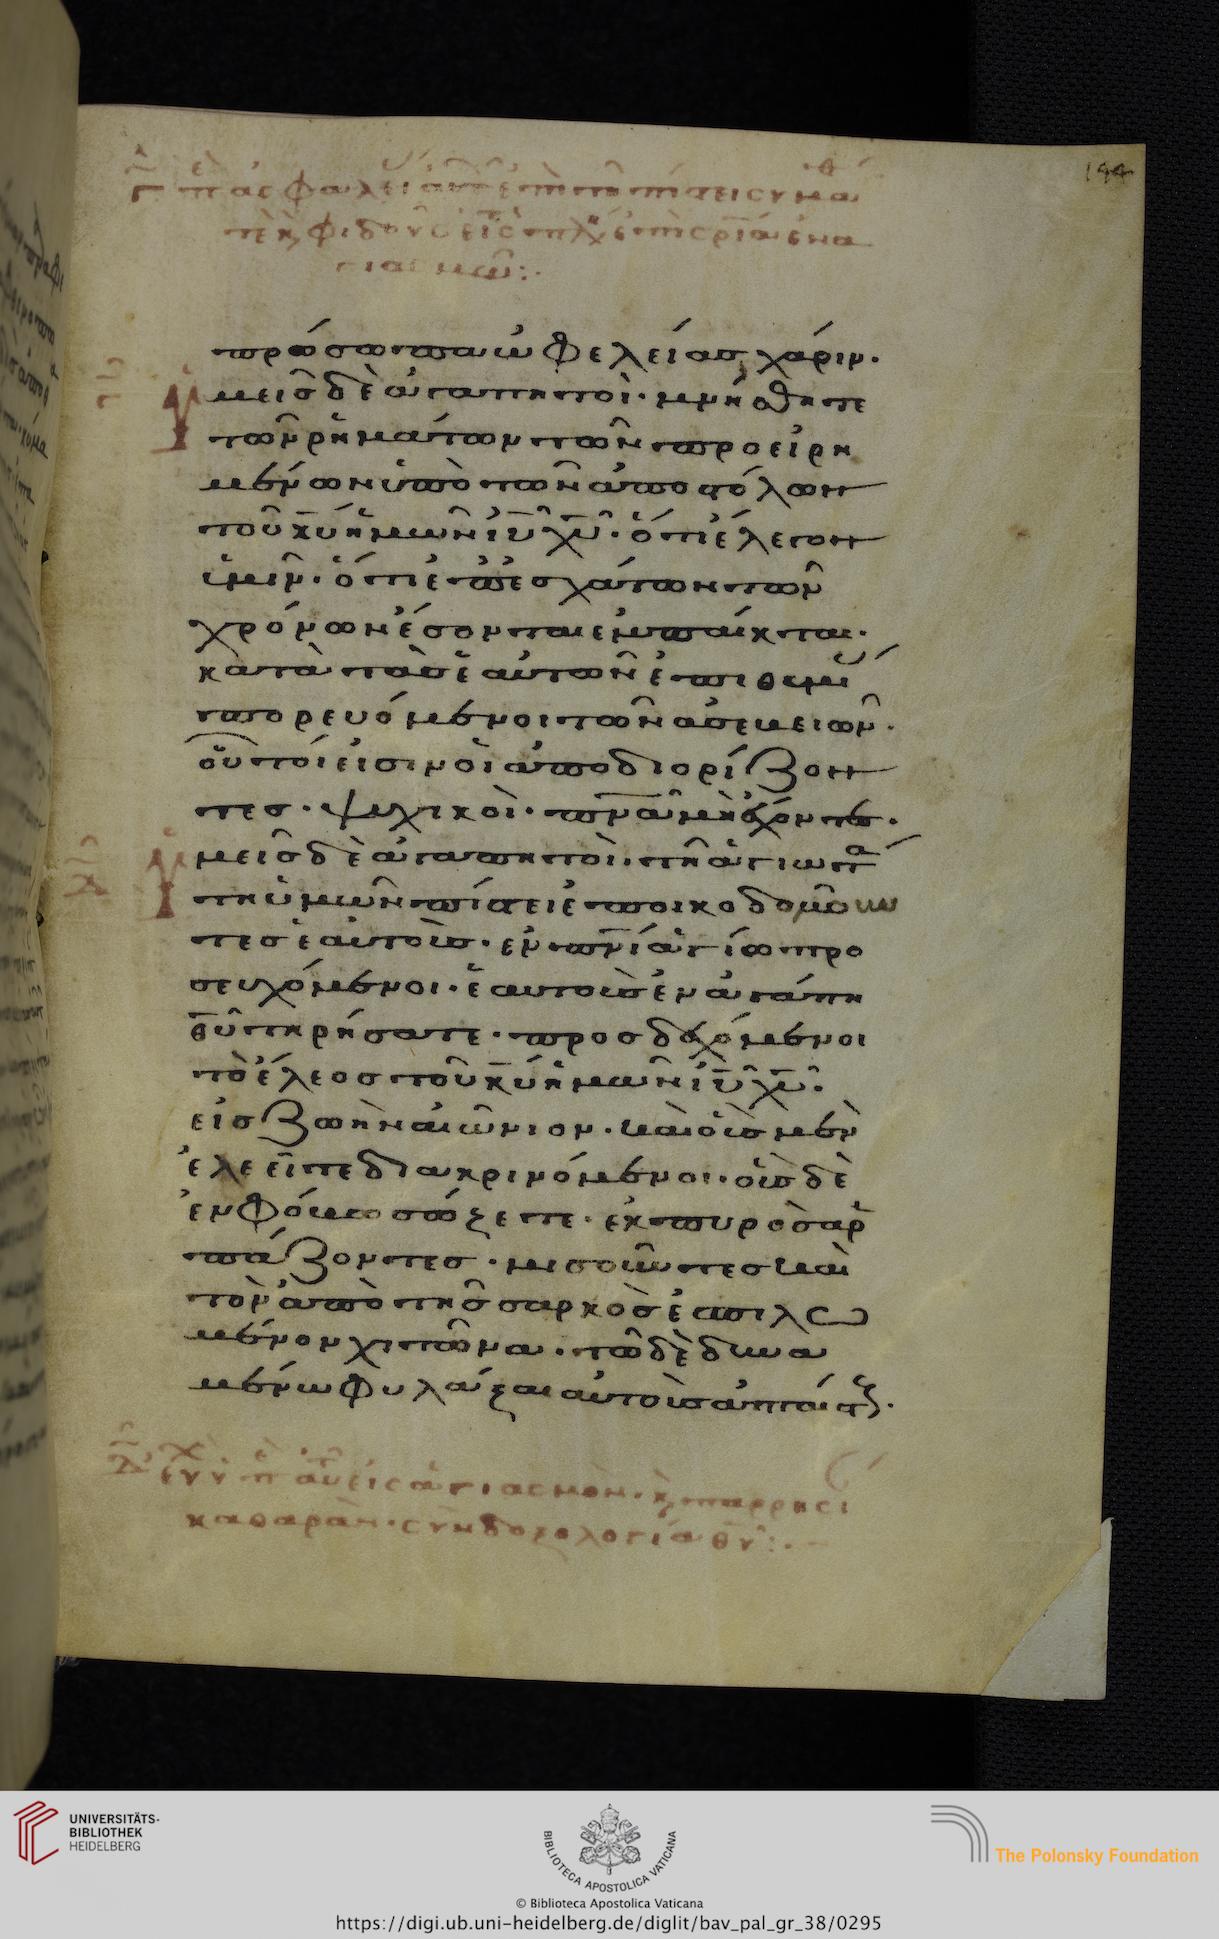 144
γ περὶ ἀσφαλείας αὐτῶν ἐν τῇ πίστει συμπα
θείας κ φειδοῦς εἰς τὸν πλησίον ἐπὶ σρίᾳ ἐν ἁ
γιασμῶ:.
πρόσωπα ὠφελείας χάριν.
Ὑμεῖς δὲ ἀγαπητοὶ. μνήσθητε
τῶν ρημάτων τῶν προειρη
μένων ὑπὸ τῶν ἀποστόλων
τοῦ κυ ἡμῶν ιυ χυ. ὅτι ἔλεγον
ὑμῖν. ὅτι ἐπ ἐσχάτων τῶν
χρόνων ἔσονται ἐμπαίκται.
κατὰ τὰς ἑαυτῶν ἐπιθυμί
πορευόμενοι τῶν ἀσεβειῶν.
οὗτοί εἰσιν οἱ ἀποδιορίζον
τες. ψυχικοὶ. πνα μὴ ἔχοντες.
Ὑμεῖς δὲ ἀγαπητοὶ. τῆ ἁγιωτά
τη ὑμῶν πίστει ἐποικοδομοῦν
τες ἑαυτοὺς. ἐν πνι ἁγίω προ
σευχόμενοι. ἑαυτοὺς ἐν ἀγάπη
θυ τηρήσατε. προσδεχόμενοι
τὸ ἔλεος τοῦ κυ ἡμῶν ιυ χυ.
εἰς ζωὴν αἰώνιον. καὶ οὓς μὲν
ἐλεεῖτε διακρινόμενοι. οὓς δὲ
ἐν φόβω σώζετε. ἐκ πυρὸς ἁρ
πάζοντες. μισοῦντες καὶ
τὸν ἀπὸ τῆς σαρκὸς ἐσπιλω
μένον χιτῶνα. τῶ δὲ δυνα
μένω φυλάξαι αὐτοὺς ἀπταίστους.
δ εὐχὴ ὑπὲρ αὐτῶν εἰς ἁγιασμὸν. κ παρρησί
καθαρὰν. σὺν δοξολογία θυ:.
UNIVERSITÄTS-
BIBLIOTHEK
HEIDELBERG
BIBLIOTECA APOSTOLICA VATICANA
© Biblioteca Apostolica Vaticana
The Polonsky Foundation
https://digi.ub.uni-heidelberg.de/diglit/bav_pal_gr_38/0295